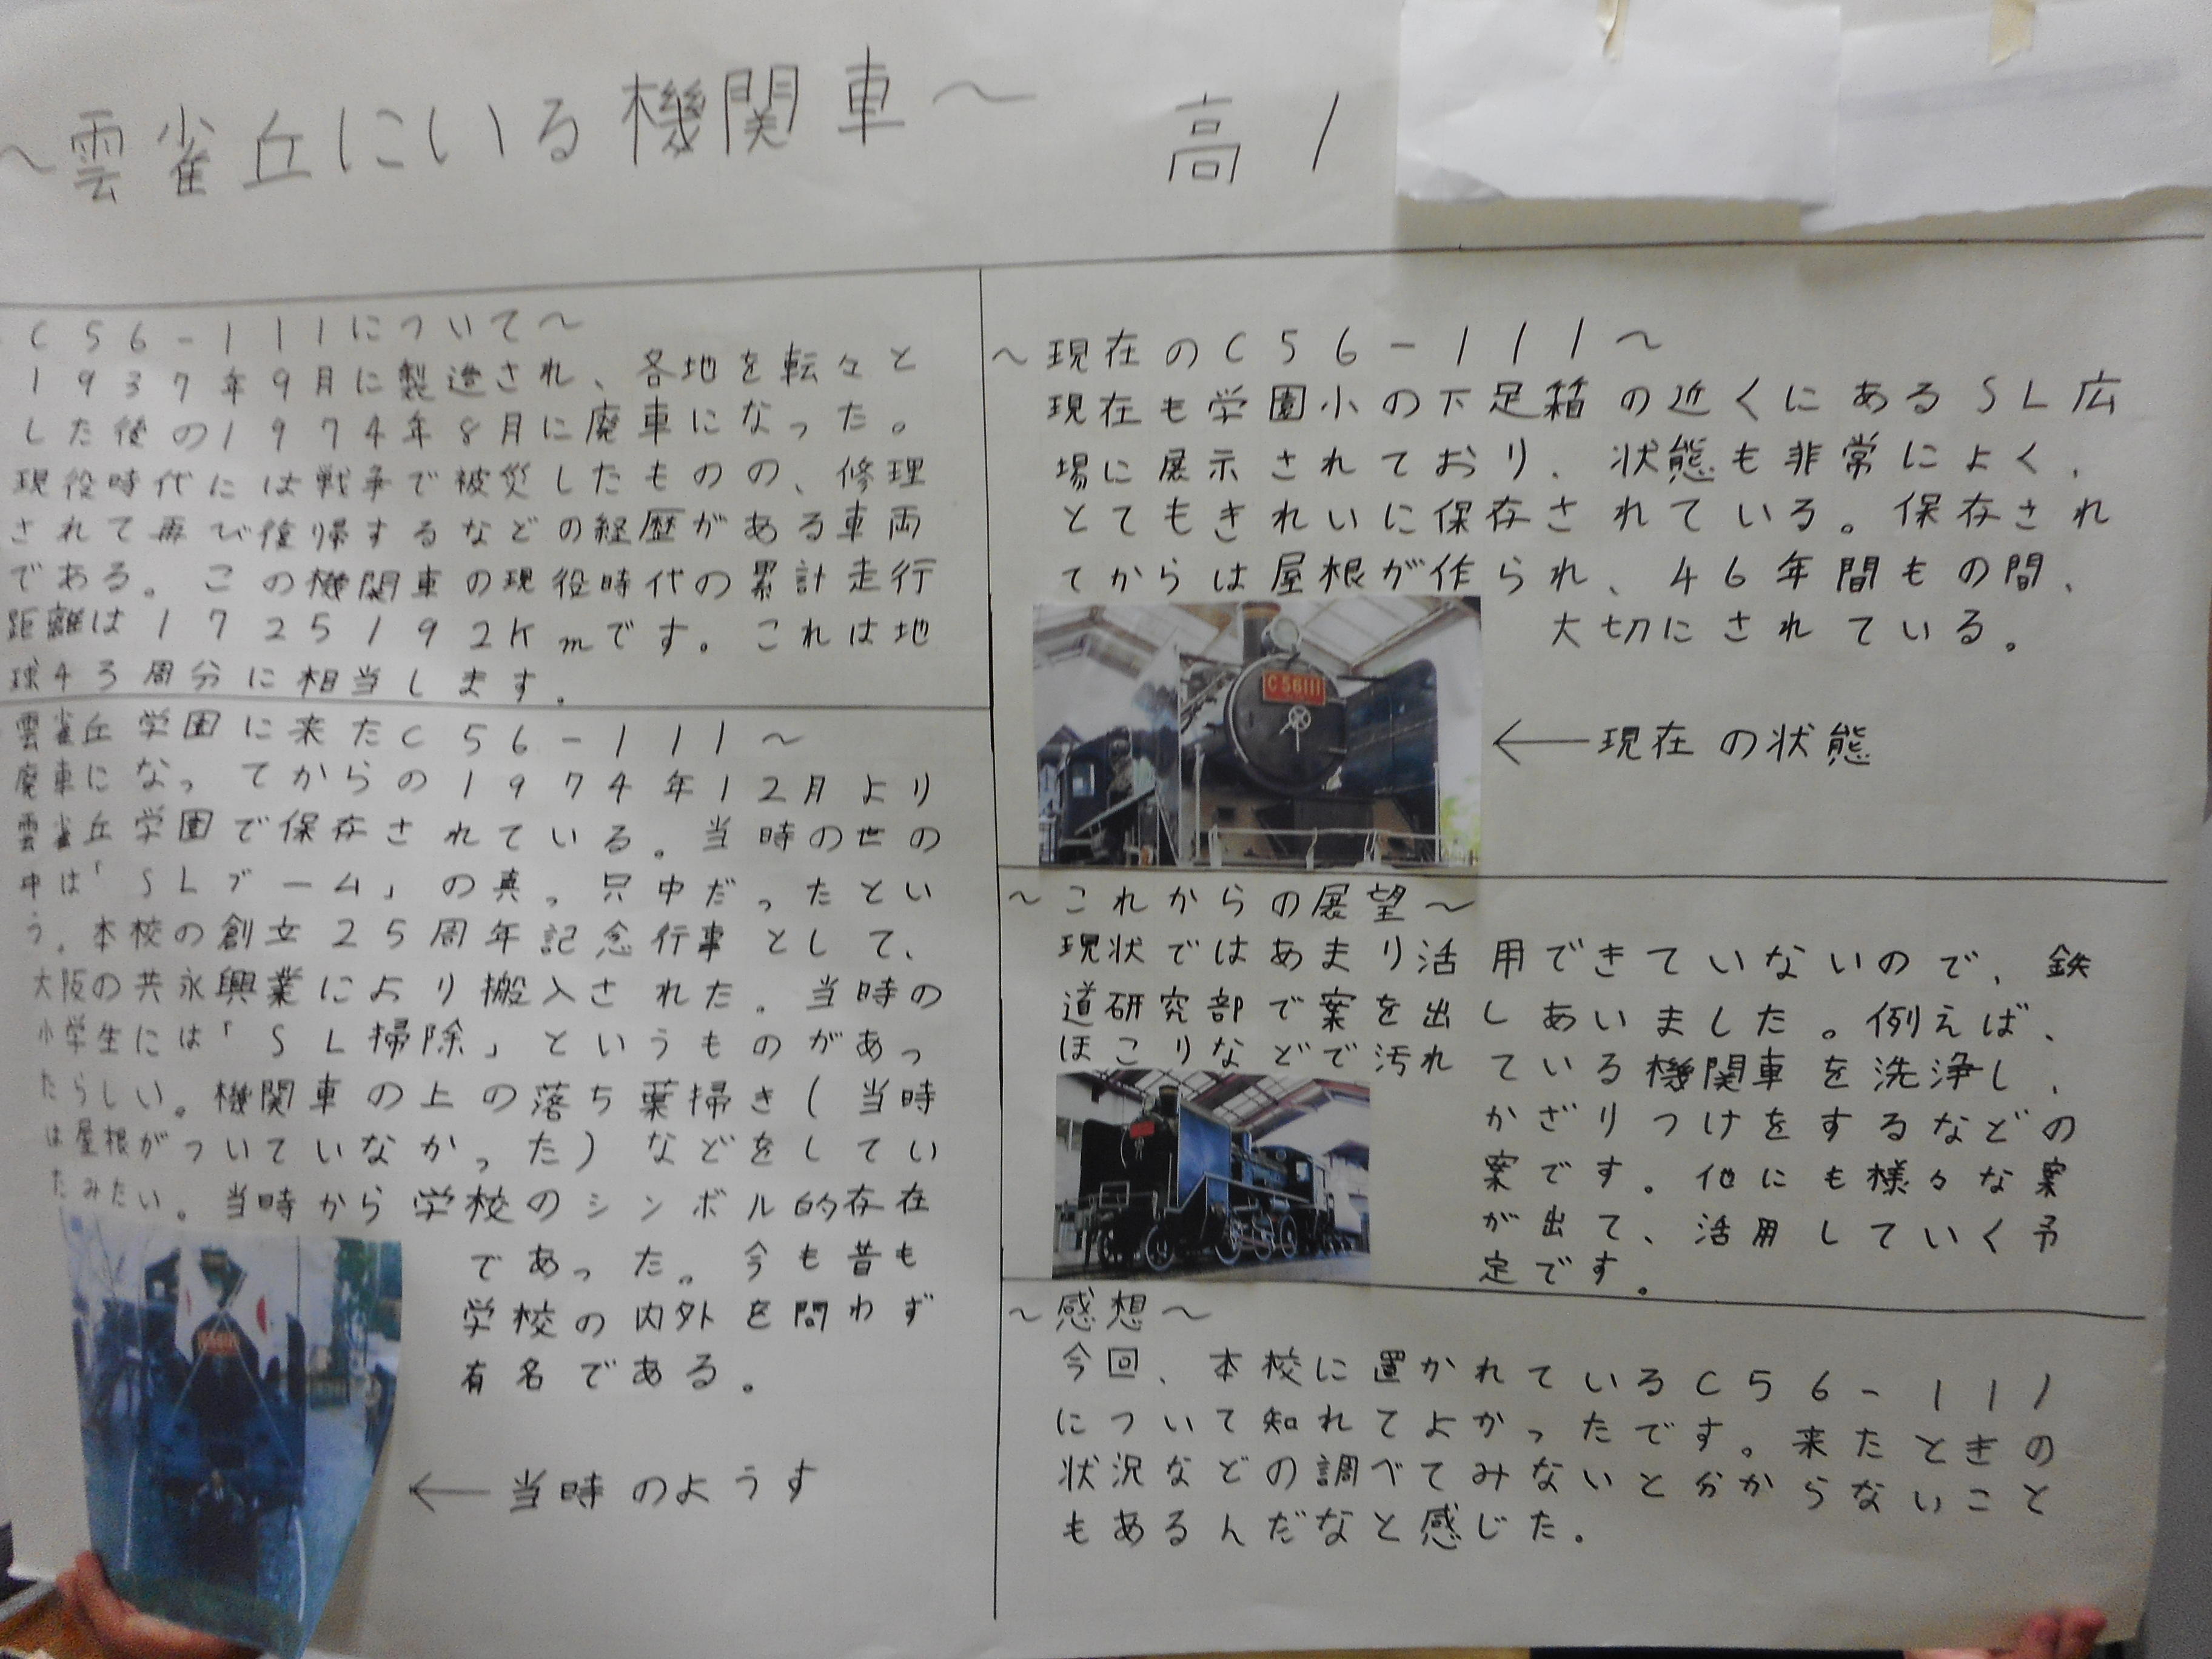 ～雲雀丘にいる機関車～　高1
C56-111について～
1937年9月に製造され、各地を転々と
した後の1974年8月に廃車になった。
現役時代には戦争で被災したものの、修理
されて再び復帰するなどの経歴がある車両
である。この機関車の現役時代の累計走行
距離は1725192Kmです。これは地
球43周分に相当します。
雲雀丘学園に来たC56-111～
廃車になってからの1974年12月より
雲雀丘学園で保存されている。当時の世の
中は「SLブーム」の真っ只中だったとい
う。本校の創立25周年記念行事として、
大阪の共永興業により搬入された。当時の
小学生には「SL掃除」というものがあっ
たらしい。機関車の上の落ち葉掃き(当時
は屋根がついていなかった)などをしてい
たみたい。当時から学校のシンボル的存在
であった。今も昔も
学校の内外を問わず
有名である。
←当時のようす
～現在のC56-111～
現在も学園小の下足箱の近くにあるSL広
場に展示されており、状態も非常によく、
とてもきれいに保存されている。保存され
てからは屋根が作られ、46年間もの間、
大切にされている。
C56111
←現在の状態
～これからの展望～
現状ではあまり活用できていないので、鉄
道研究部で案を出しあいました。例えば、
ほこりなどで汚れている機関車を洗浄し、
かざりつけをするなどの
案です。他にも様々な案
が出て、活用していく予
定です。
～感想～
今回、本校に置かれているC56-111
について知れてよかったです。来たときの
状況などの調べてみないと分からないこと
もあるんだなと感じた。